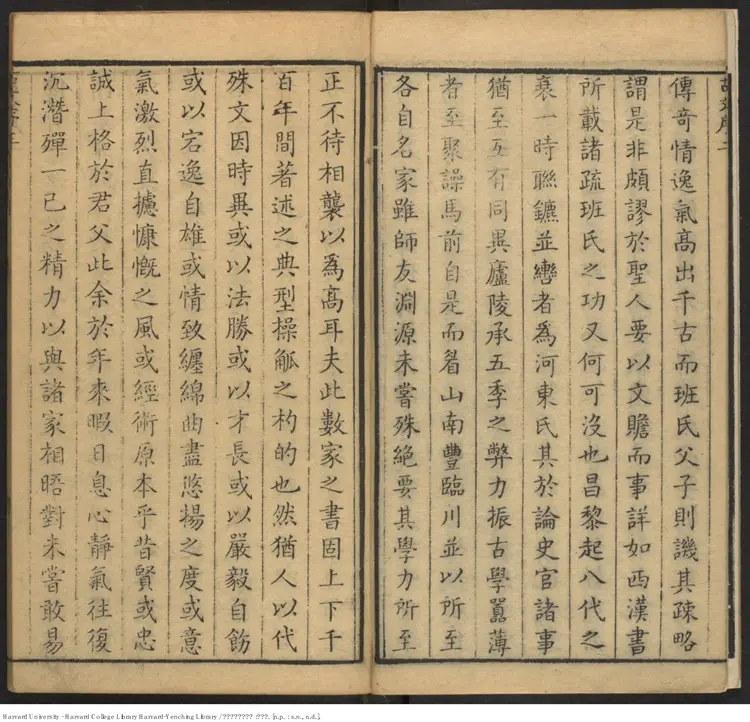 傳奇情逸氣高出千古而班氏父子則譏其疎略
謂是非頗謬於聖人要以文贍而事詳如西漢書
所載諸疏班氏之功又何可沒也昌黎起八代之
衰一時聯鑣並轡者為河東氏其於論史官諸事
猶至互有同異廬陵承五季之弊力振古學囂薄
者至聚譟馬前自是而眉山南豐臨川並以所至
各自名家雖師友淵源未嘗殊絶要其學力所至
正不待相襲以為高耳夫此數家之書固上下千
百年間著述之典型操觚之杓的也然猶人以代
殊文因時異或以法勝或以才長或以嚴毅自飭
或以宕逸自雄或情致纏綿曲盡悠揚之度或意
氣激烈直攄慷慨之風或經術原本乎昔賢或忠
誠上格於君父此余於年來暇日息心靜氣往復
沉潛殫一已之精力以與諸家相晤對未嘗敢易
Harvard University - Harvard College Library Harvard-Yenching Library / ???????? :???. [n.p. : s.n., n.d.].